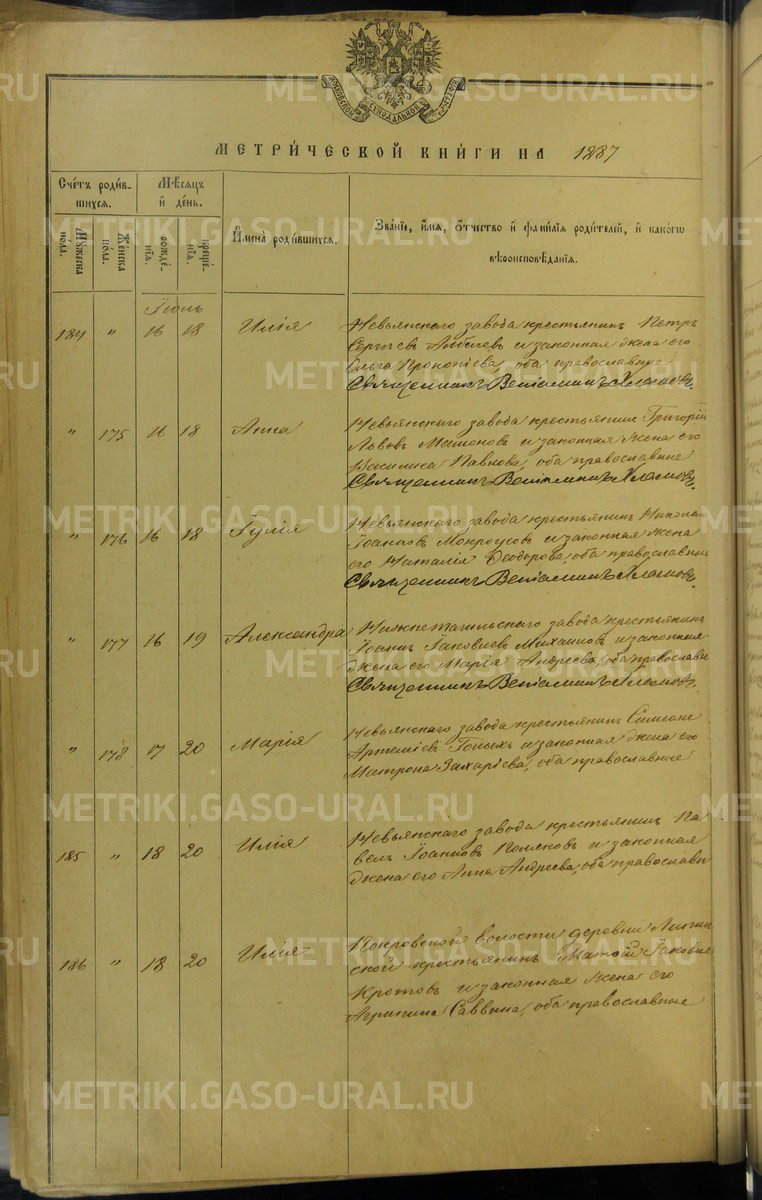 МОСКОВСКОЙ СѴНОДАЛЬНОЙ ТѴПОГРАФІИ
МЕТРИ́ЧЕСКОЙ КНИ́ГИ НА 1887
Сче́тъ роди́вшихся.
Мѣ́сяцъ и҆ де́нь.
Мꙋ́жеска по́ла.
Же́нска по́ла.
рожде́нїѧ.
креще́нїѧ.
И҆мена̀ роди́вшихся.
Зва́нїе, и҆́мѧ, ѻ҆́тчество и҆ фами́лїѧ роди́телей, и҆ како́гѡ
вѣроисповѣ́данїѧ.
Іюль
184 " 16 18 Илія
Невьянскаго завода крестьянинъ Петръ
Сергіевъ и законная жена его
Ольга Прокопіева, оба православные
Священникъ Веніаминъ
" 175 16 18 Анна
Невьянскаго завода крестьянинъ Григорій
Львовъ Мамоновъ и законная жена его
Василиса Павлова, оба православные
Священникъ Веніаминъ
" 176 16 18 Іулія
Невьянскаго завода крестьянинъ Николай
Іоанновъ Мокроусовъ и законная жена
его Наталія Ѳеодорова, оба православные
Священникъ Веніаминъ
" 177 16 19 Александра
Нижнетагильскаго завода крестьянинъ
Іоаннъ Іаковлевъ и законная
жена его Марія Андреева, оба православн
Священникъ Веніаминъ
" 178 17 20 Марія
Невьянскаго завода крестьянинъ Симеонъ
Артеміевъ Голыхъ и законная жена его
Матрона Захаріева, оба православные
185 " 18 20 Илія
Невьянскаго завода крестьянинъ Па
велъ Іоанновъ Поляковъ и законная
жена его Анна Андреева, оба православн
186 " 18 20 Илія
Покровской волости деревни
ской крестьянинъ Матѳій Іаковле
Кротовъ и законная жена его
Агрипина Саввина, оба православные
METRIKI.GASO-URAL.RU